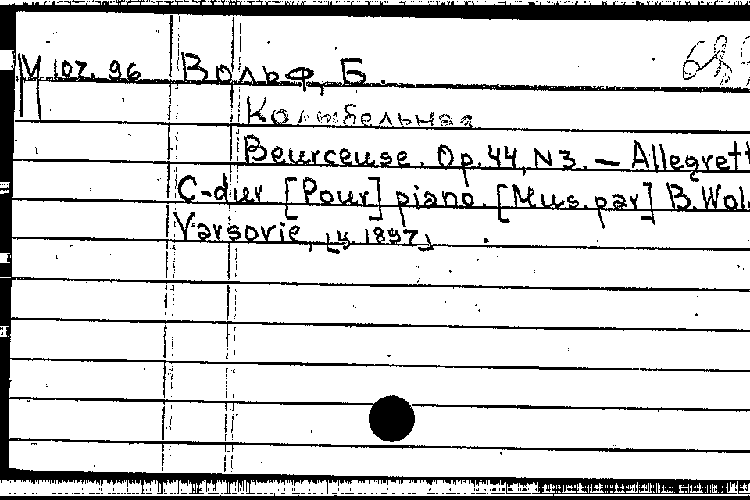 М 107.96 Вольф, Б. 689
Колыбельная
Beurceuse. Op. 44, N 3. — Allegrett
C-dur [Pour] piano. [Mus. par] B. Wol.
Varsovie, [ц. 1897]